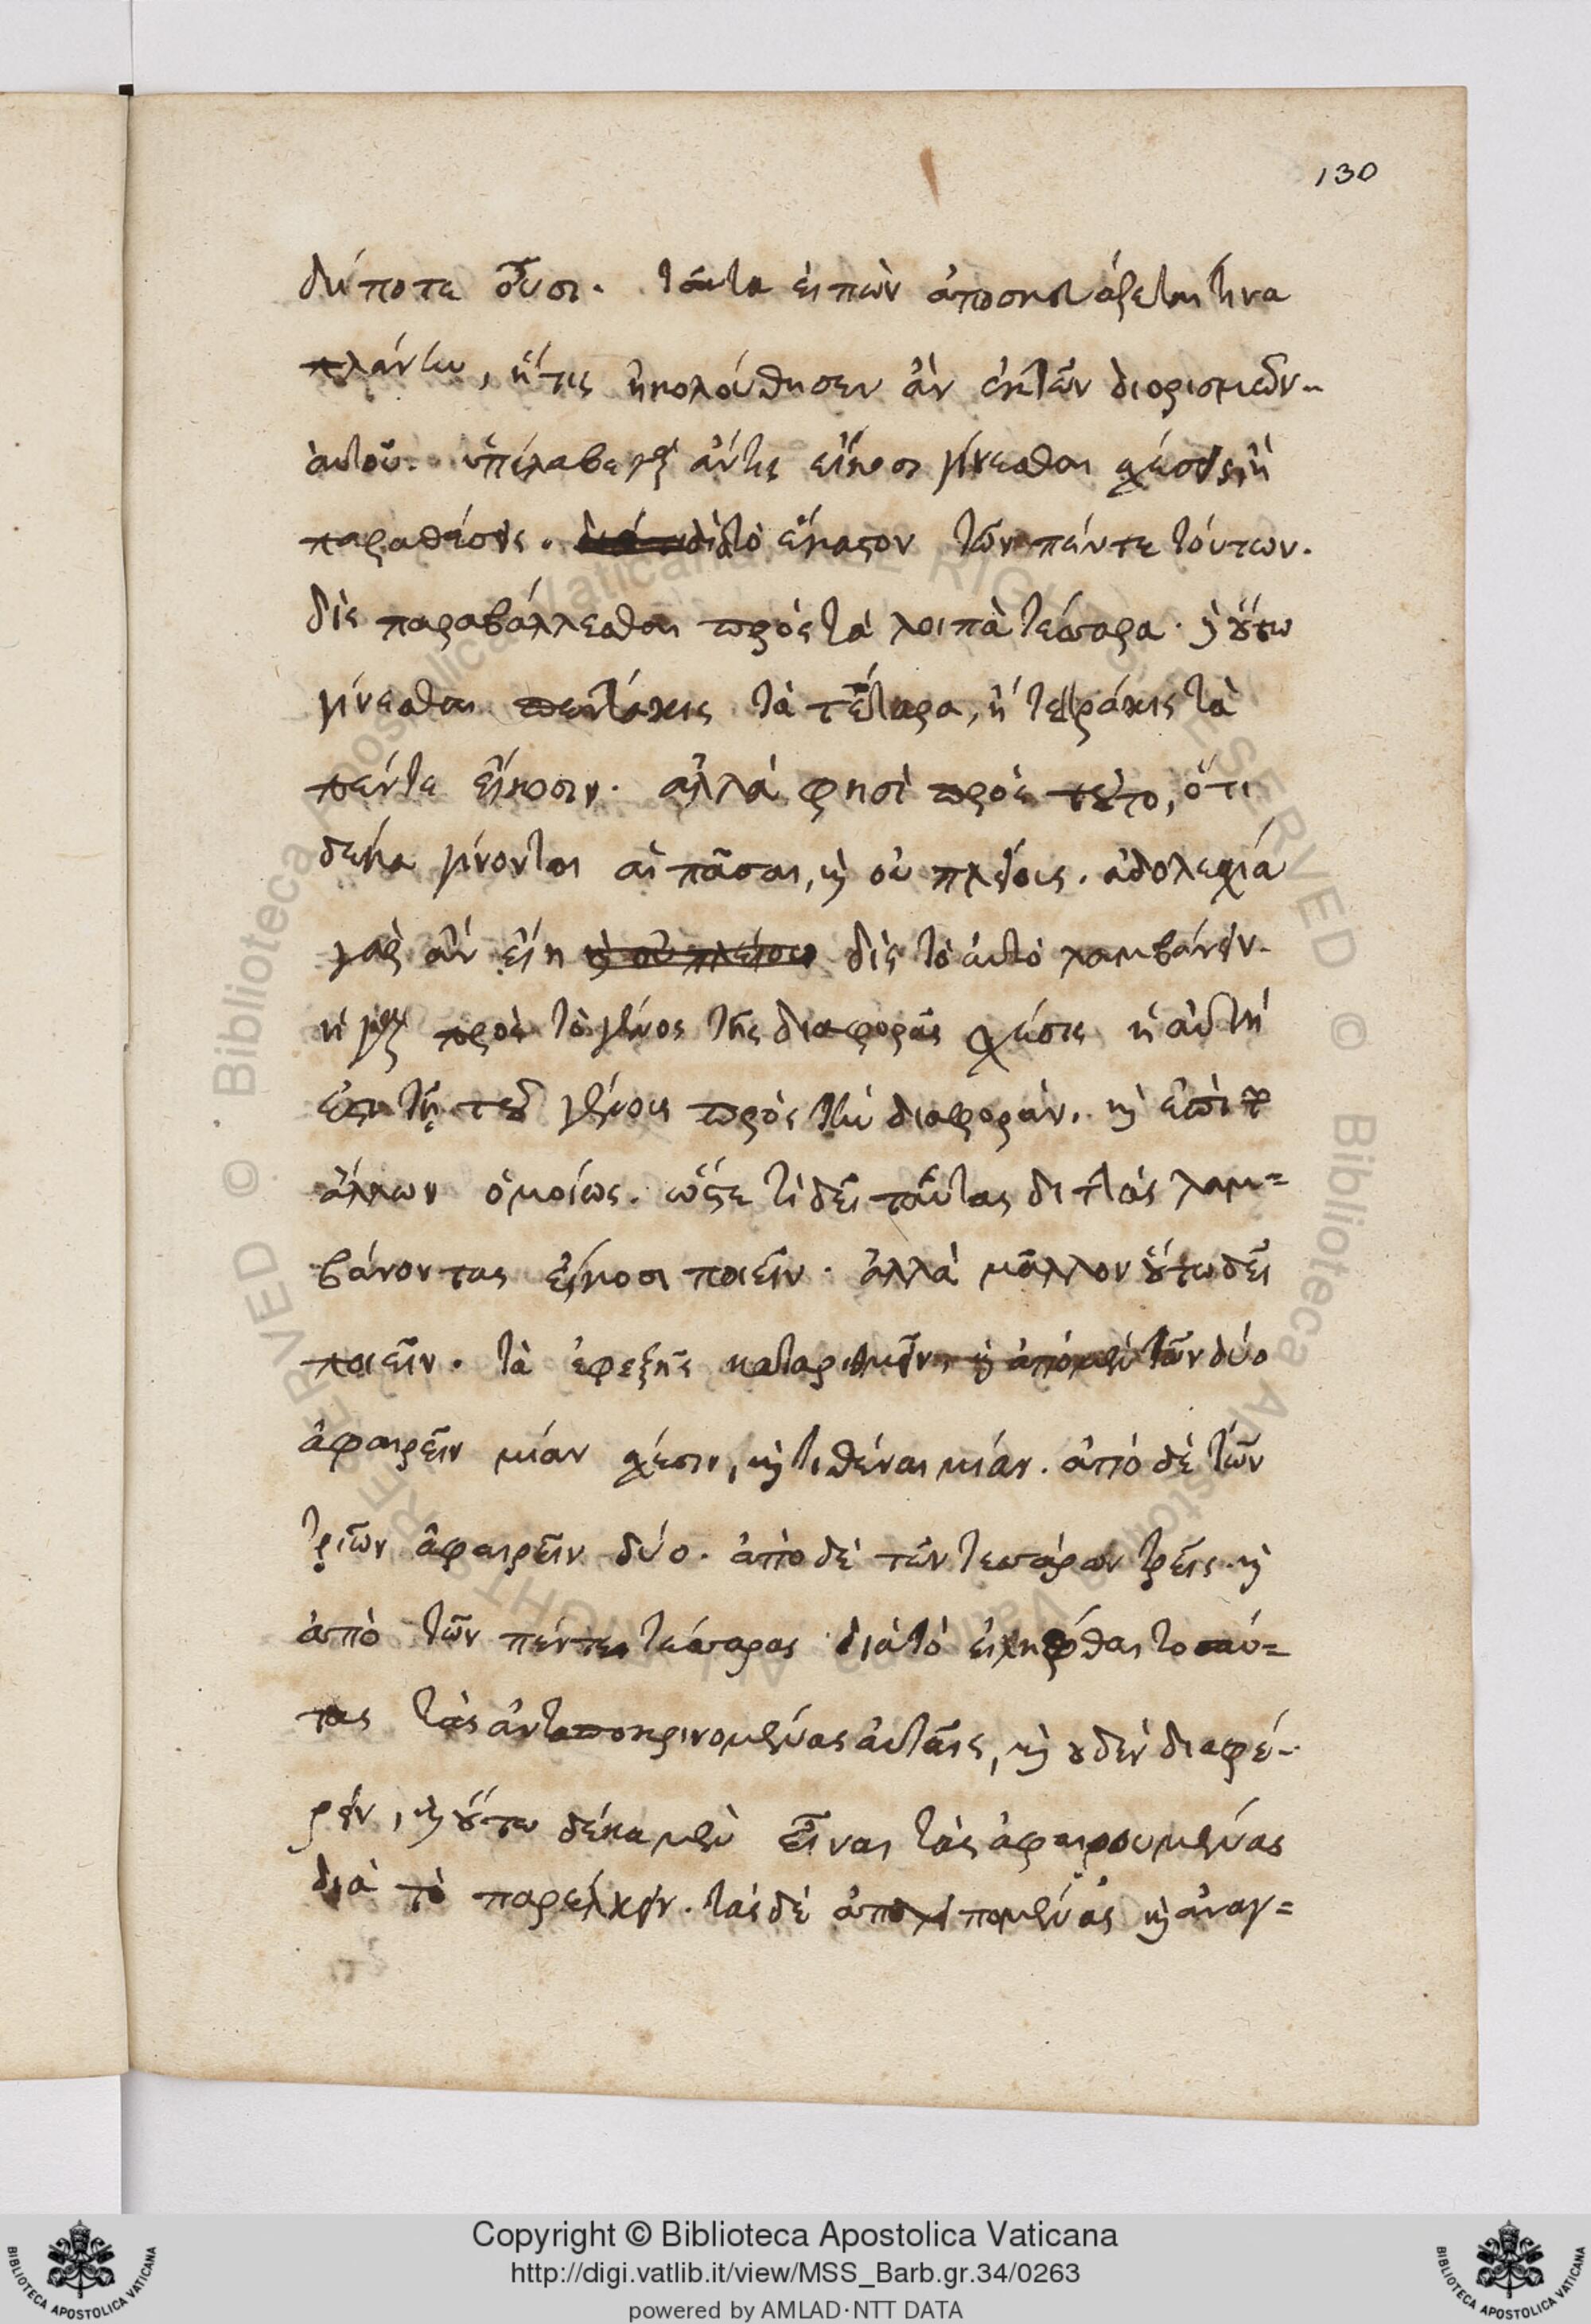 130
δήποτε οὖσι. ταῦτα εἰπὼν ἀποσκευάζεται τινα
πλάνην, ἥτις ἠκολούθησεν ἂν ἐκ τῶν διορισμῶν
αὐτοῦ. ὑπέλαβε γὰρ ἄν τις εἴκοσι γίνεσθαι σχέσεις ἢ
παραθέσεις. διὰ τὸ ἕκαστον τῶν πέντε τούτων.
δὶς παραβάλλεσθαι πρὸς τὰ λοιπὰ τέσσαρα. καὶ οὕτω
γίνεσθαι πεντάκις τὰ τέτταρα, ἢ τετράκις τὰ
πέντε εἴκοσιν. ἀλλά φησι πρὸς τοῦτο, ὅτι
δέκα γίνονται αἱ πᾶσαι, καὶ οὐ πλείους. ἀδολεσχία
γὰρ ἂν εἴη καὶ οὐ πλείους δὶς τὸ αὐτὸ λαμβάνειν.
ἡ γὰρ πρὸς τὸ γένος τῆς διαφορᾶς σχέσις ἡ αὐτή
ἐστι τῇ τοῦ γένους πρὸς τὴν διαφοράν. καὶ ἐπὶ τῶν
ἄλλων ὁμοίως. ὥστε τί δεῖ ταύτας διττὰς λαμ=
βάνοντας εἴκοσι ποιεῖν. ἀλλὰ μᾶλλον οὕτω δεῖ
ποιεῖν. τὰ ἐφεξῆς καταριθμεῖν, καὶ ἀπὸ μὲν τῶν δύο
ἀφαιρεῖν μίαν σχέσιν, καὶ τιθέναι μίαν. ἀπὸ δὲ τῶν
τριῶν ἀφαιρεῖν δύο. ἀπὸ δὲ τῶν τεσσάρων τρεῖς. καὶ
ἀπὸ τῶν πέντε τέσσαρας διὰ τὸ εἰλῆφθαι τοσαύ=
τας τὰς ἀνταποκρινομένας αὐταῖς, καὶ οὐδὲν διαφέ-
ρειν, καὶ οὕτω δέκα μὲν εἶναι τὰς ἀφαιρουμένας
διὰ τὸ παρέλκειν. τὰς δὲ ἀπολειπομένας καὶ ἀναγ=
Copyright © Biblioteca Apostolica Vaticana
http://digi.vatlib.it/view/MSS_Barb.gr.34/0263
powered by AMLAD·NTT DATA